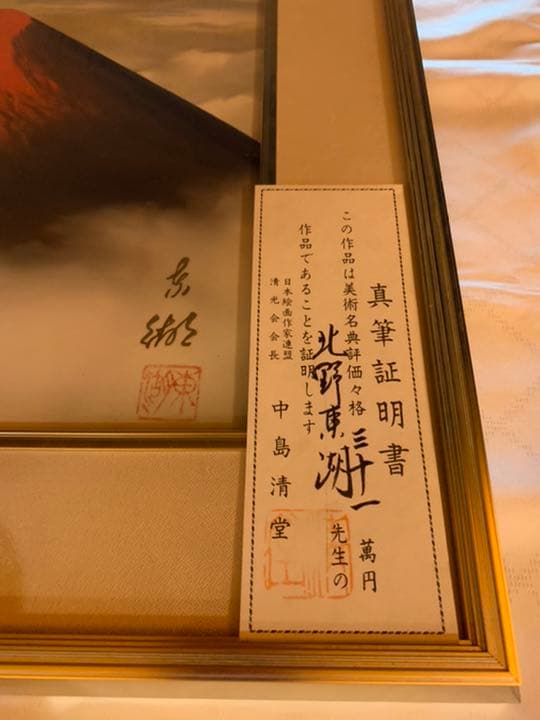 真筆証明書
この作品は美術名典評価々格三十一萬円
北野東湖先生の
作品であることを証明します
日本絵画作家連盟
清光会会長 中島清堂
東湖
東湖